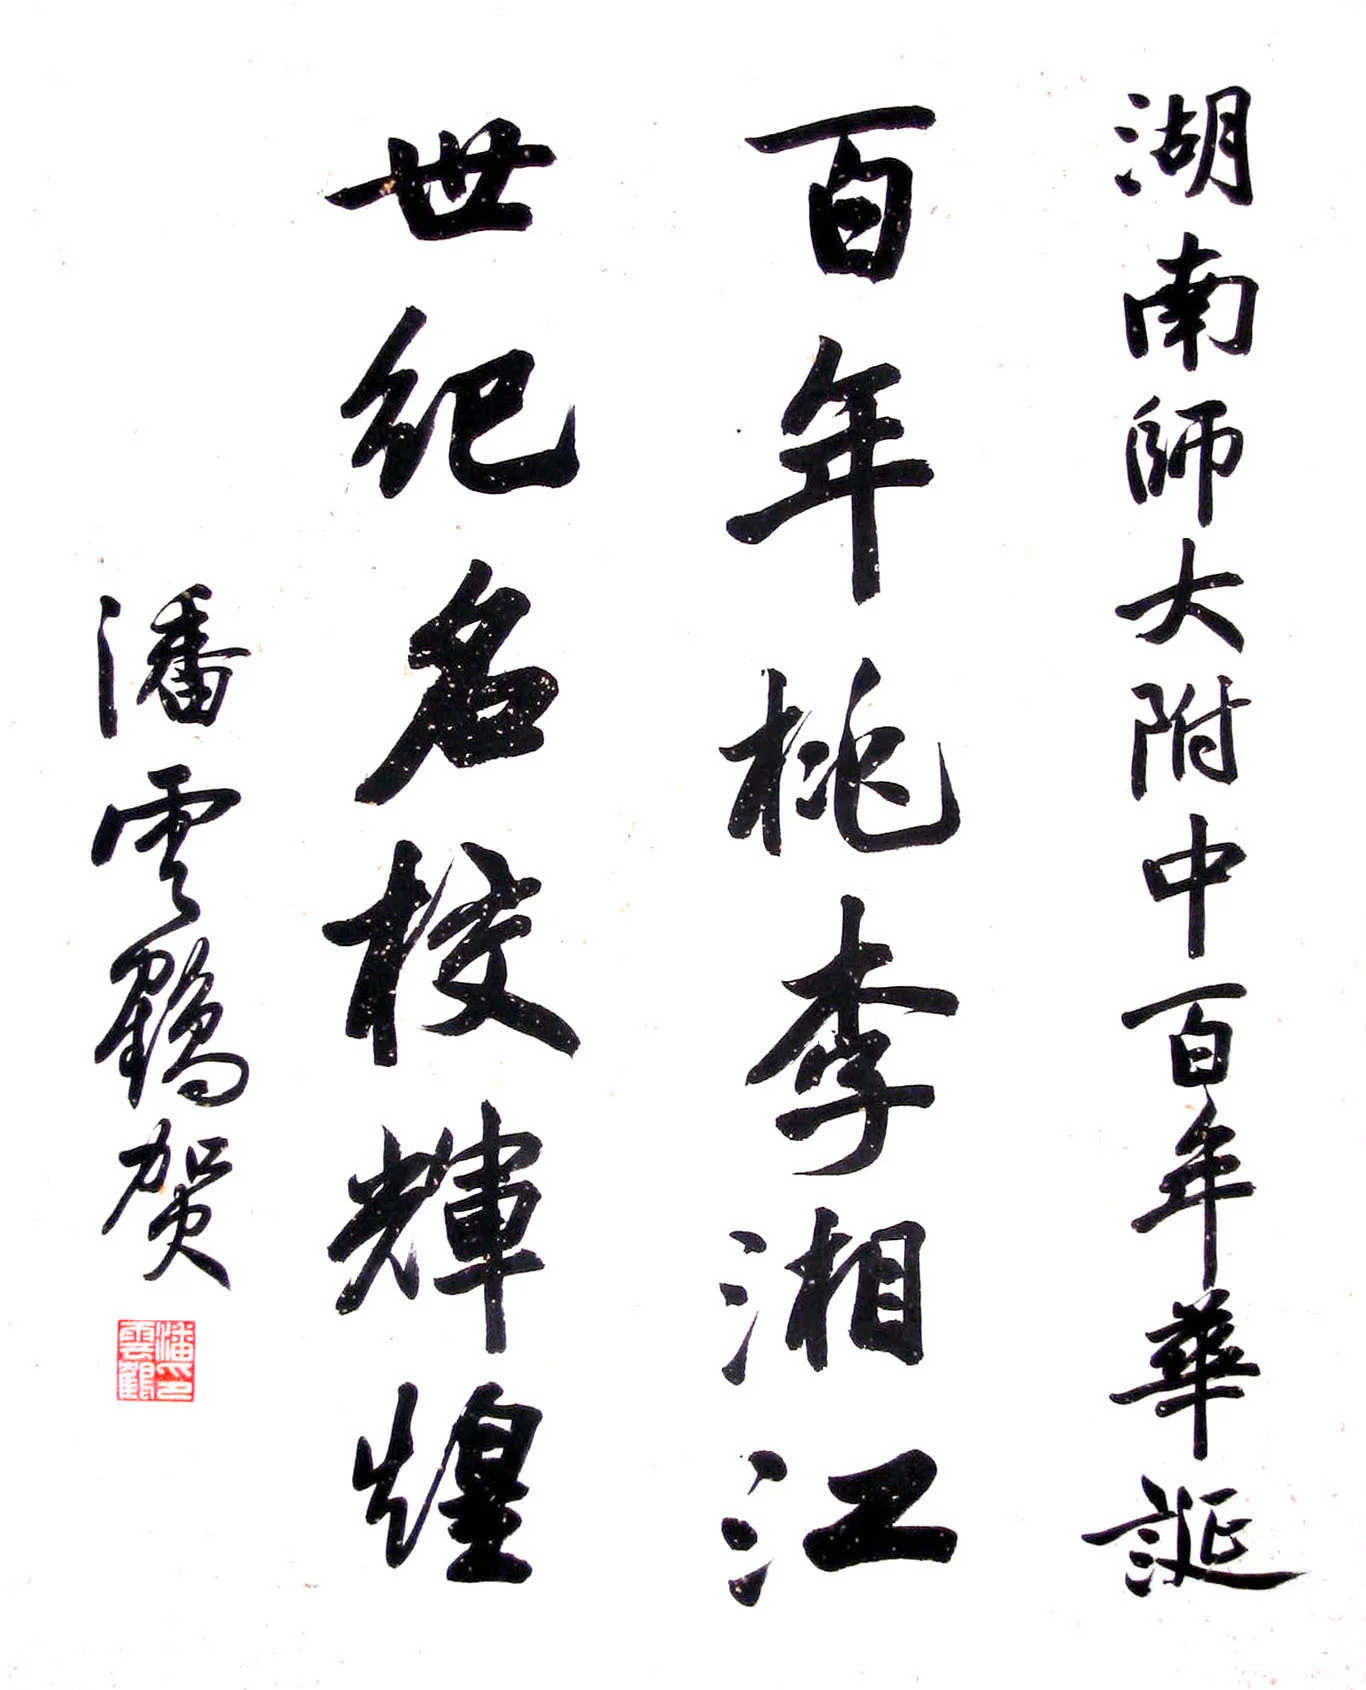 湖南師大附中百年華誕
百年桃李湘江
世紀名校輝煌
潘雲鶴贺
潘雲鶴印